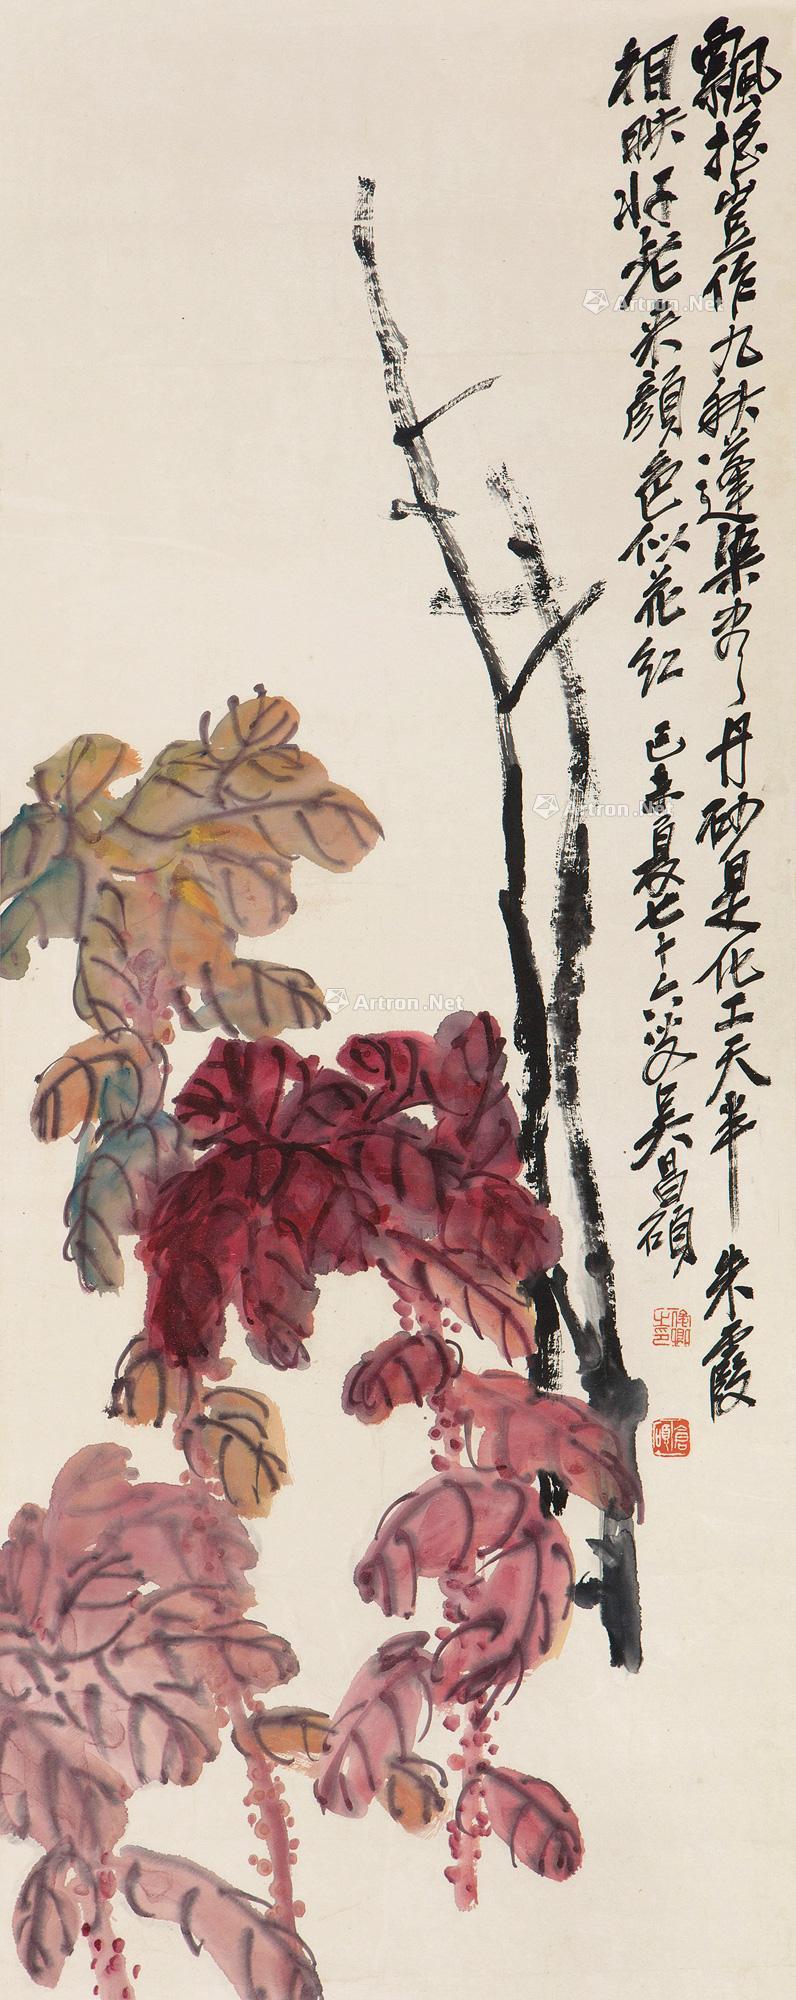 飄摇豈作九秋蓬染出丹砂是化工天半朱霞
相映好老来顔色似花紅 己未夏七十六叟吴昌碩
俊卿之印
倉碩
Artron.Net
Artron.Net
Artron.Net